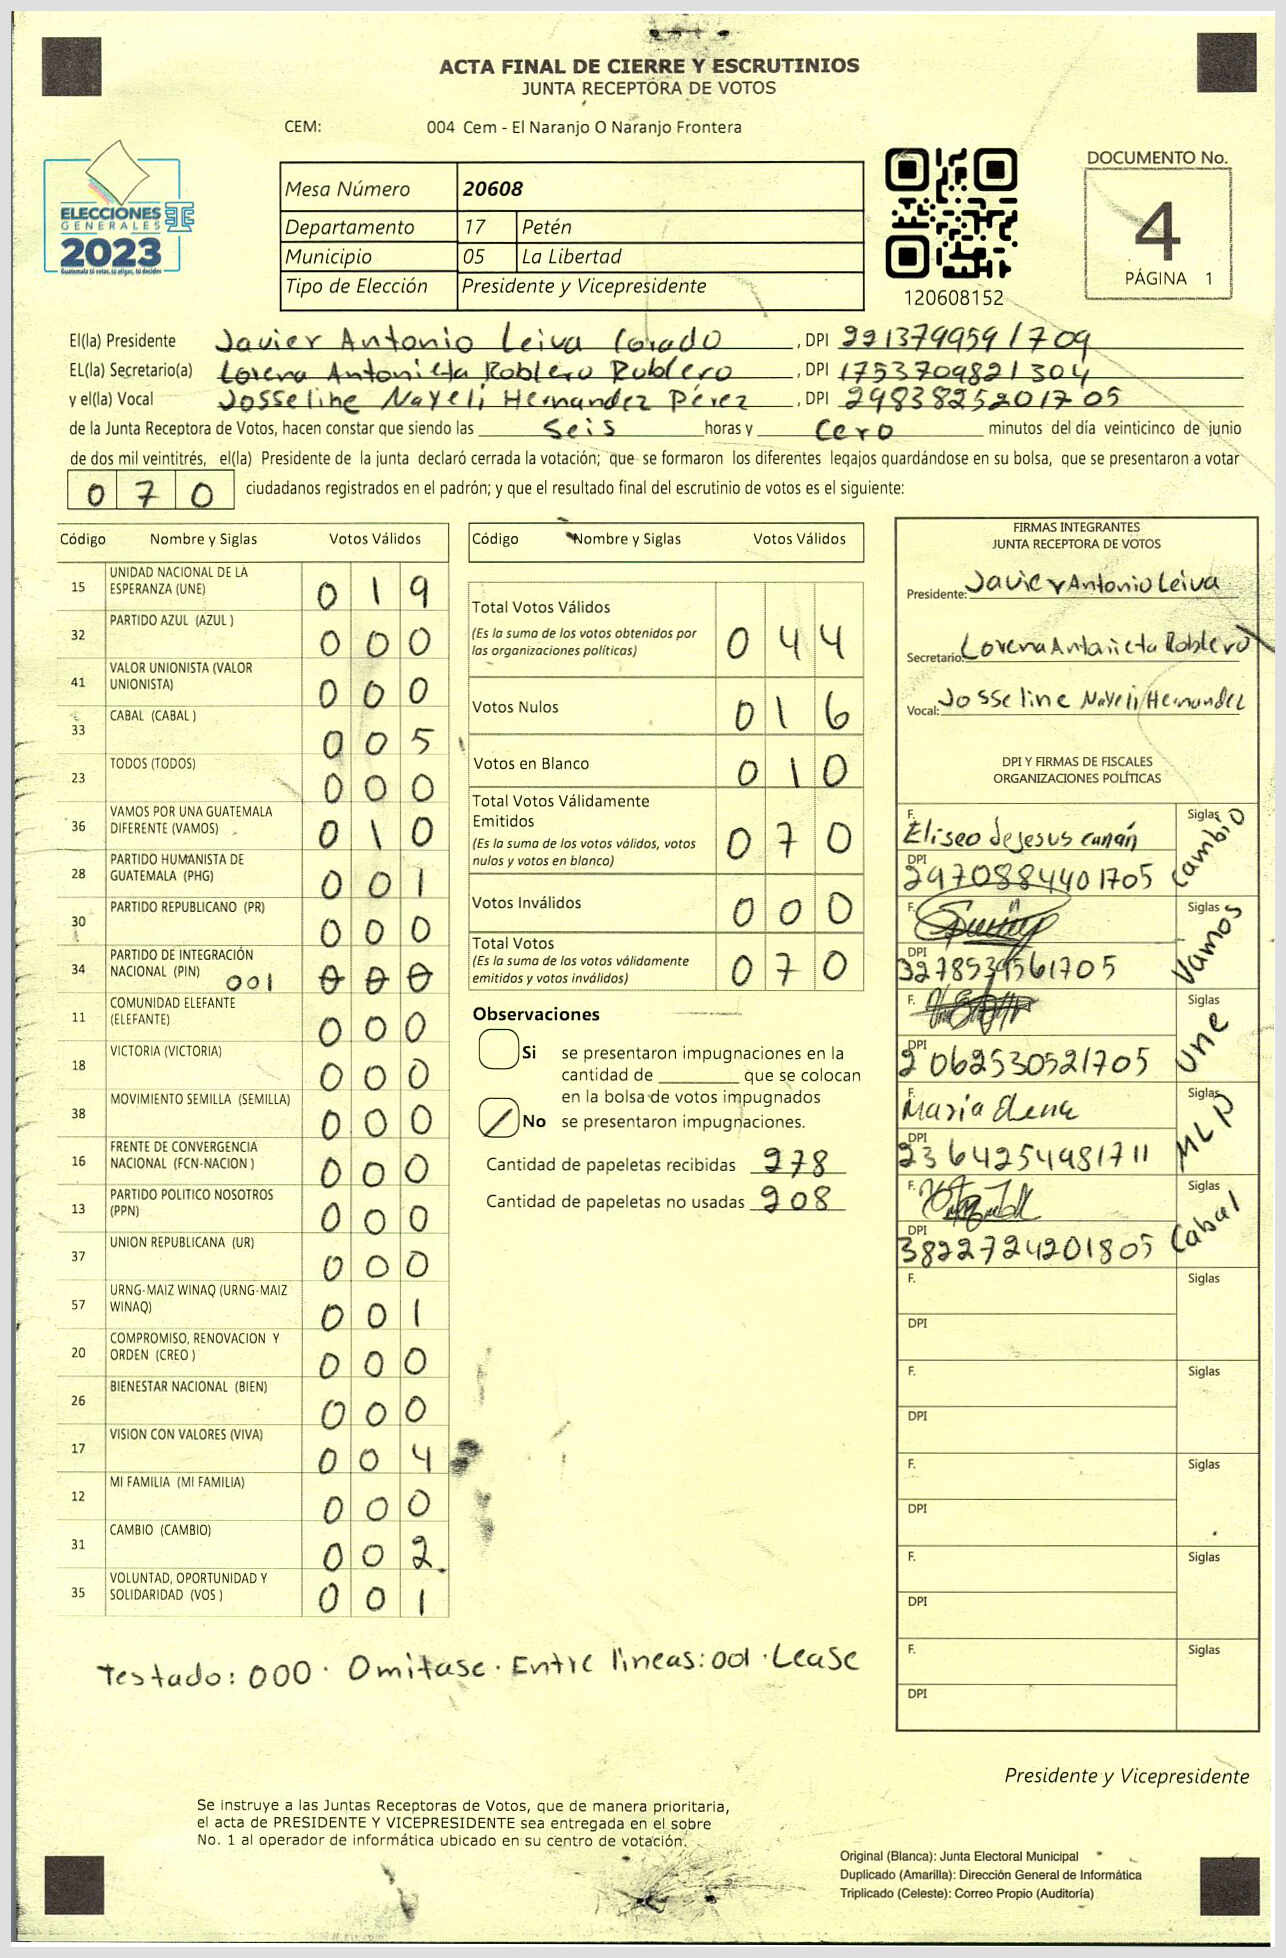 ACTA FINAL DE CIERRE Y ESCRUTINIOS
JUNTA RECEPTORA DE VOTOS
CEM: 004 Cem - El Naranjo O Naranjo Frontera
ELECCIONES
GENERALES
2023
Guatemala tú votas, tú eliges, tú decides
Mesa Número 20608
Departamento 17 Petén
Municipio 05 La Libertad
Tipo de Elección Presidente y Vicepresidente
120608152
DOCUMENTO No.
4
PÁGINA 1
El(la) Presidente Javier Antonio Leiva Corado, DPI 2213799591709
EL(la) Secretario(a) Lorena Antonieta Roblero Roblero, DPI 1753709821304
y el(la) Vocal Josseline Nayeli Hernandez Pérez, DPI 2983825201705
de la Junta Receptora de Votos, hacen constar que siendo las Seis horas y Cero minutos del día veinticinco de junio
de dos mil veintitrés, el(la) Presidente de la junta declaró cerrada la votación; que se formaron los diferentes legajos guardándose en su bolsa, que se presentaron a votar
070 ciudadanos registrados en el padrón; y que el resultado final del escrutinio de votos es el siguiente:
Código Nombre y Siglas Votos Válidos
15 UNIDAD NACIONAL DE LA ESPERANZA (UNE) 019
32 PARTIDO AZUL (AZUL ) 000
41 VALOR UNIONISTA (VALOR UNIONISTA) 000
33 CABAL (CABAL ) 005
23 TODOS (TODOS) 000
36 VAMOS POR UNA GUATEMALA DIFERENTE (VAMOS) 010
28 PARTIDO HUMANISTA DE GUATEMALA (PHG) 001
30 PARTIDO REPUBLICANO (PR) 000
34 PARTIDO DE INTEGRACIÓN NACIONAL (PIN) 001 000
11 COMUNIDAD ELEFANTE (ELEFANTE) 000
18 VICTORIA (VICTORIA) 000
38 MOVIMIENTO SEMILLA (SEMILLA) 000
16 FRENTE DE CONVERGENCIA NACIONAL (FCN-NACION ) 000
13 PARTIDO POLITICO NOSOTROS (PPN) 000
37 UNION REPUBLICANA (UR) 000
57 URNG-MAIZ WINAQ (URNG-MAIZ WINAQ) 001
20 COMPROMISO, RENOVACION Y ORDEN (CREO ) 000
26 BIENESTAR NACIONAL (BIEN) 000
17 VISION CON VALORES (VIVA) 004
12 MI FAMILIA (MI FAMILIA) 000
31 CAMBIO (CAMBIO) 002
35 VOLUNTAD, OPORTUNIDAD Y SOLIDARIDAD (VOS ) 001
Testado: 000 · Omitase · Entre lineas: 001 · Lease
Código Nombre y Siglas Votos Válidos
Total Votos Válidos 044
(Es la suma de los votos obtenidos por las organizaciones políticas)
Votos Nulos 016
Votos en Blanco 010
Total Votos Válidamente Emitidos 070
(Es la suma de los votos válidos, votos nulos y votos en blanco)
Votos Inválidos 000
Total Votos 070
(Es la suma de los votos válidamente emitidos y votos inválidos)
Observaciones
Si se presentaron impugnaciones en la
cantidad de ________ que se colocan
en la bolsa de votos impugnados
No se presentaron impugnaciones.
Cantidad de papeletas recibidas 278
Cantidad de papeletas no usadas 208
FIRMAS INTEGRANTES
JUNTA RECEPTORA DE VOTOS
Presidente: Javier Antonio Leiva
Secretario: Lorena Antonieta Roblero
Vocal: Josseline Nayeli Hernandez
DPI Y FIRMAS DE FISCALES
ORGANIZACIONES POLÍTICAS
F. Eliseo de jesus Siglas Cambio
DPI 2970884401705
F. Siglas Vamos
DPI 3278539561705
F. Siglas Une
DPI 2062530521705
F. Maria Elena Siglas MLP
DPI 2364254981711
F. Siglas Cabal
DPI 3822724201805
F. Siglas
DPI
F. Siglas
DPI
F. Siglas
DPI
F. Siglas
DPI
F. Siglas
DPI
Presidente y Vicepresidente
Se instruye a las Juntas Receptoras de Votos, que de manera prioritaria,
el acta de PRESIDENTE Y VICEPRESIDENTE sea entregada en el sobre
No. 1 al operador de informática ubicado en su centro de votación.
Original (Blanca): Junta Electoral Municipal
Duplicado (Amarilla): Dirección General de Informática
Triplicado (Celeste): Correo Propio (Auditoría)